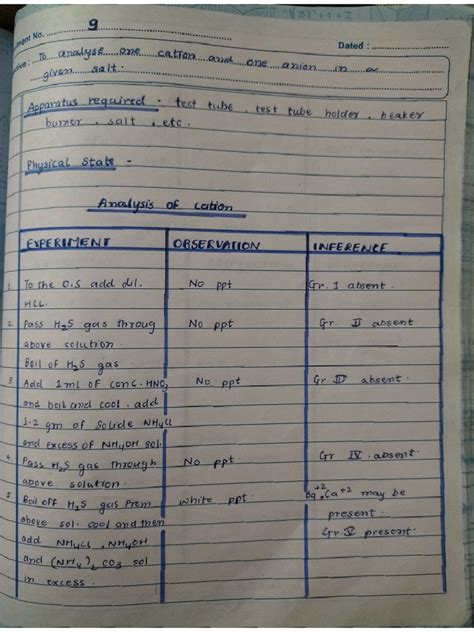 ment No. 9
Dated :
ctive : To analyse one cation and one anion in a
given salt.
Apparatus required - test tube, test tube holder, beaker
burner, salt, etc.
Physical State -
Analysis of cation
EXPERIMENT OBSERVATION INFERENCE
1 To the O.S add dil. No ppt Gr. I absent.
HCL.
2 Pass H2S gas throug No ppt Gr II absent
above solution.
Boil of H2S gas.
3 Add 1 ml of conc. HNO3 No ppt Gr III absent.
and boil and cool. add
1-2 gm of Solide NH4Cl
and excess of NH4OH sol.
4. Pass H2S gas through No ppt Gr IV. absent.
above solution.
5 Boil off H2S gas from white ppt. Ca+2 may be
above sol. cool and then present.
add NH4Cl, NH4OH Gr V present.
and (NH4)2 CO3 sol
in excess.